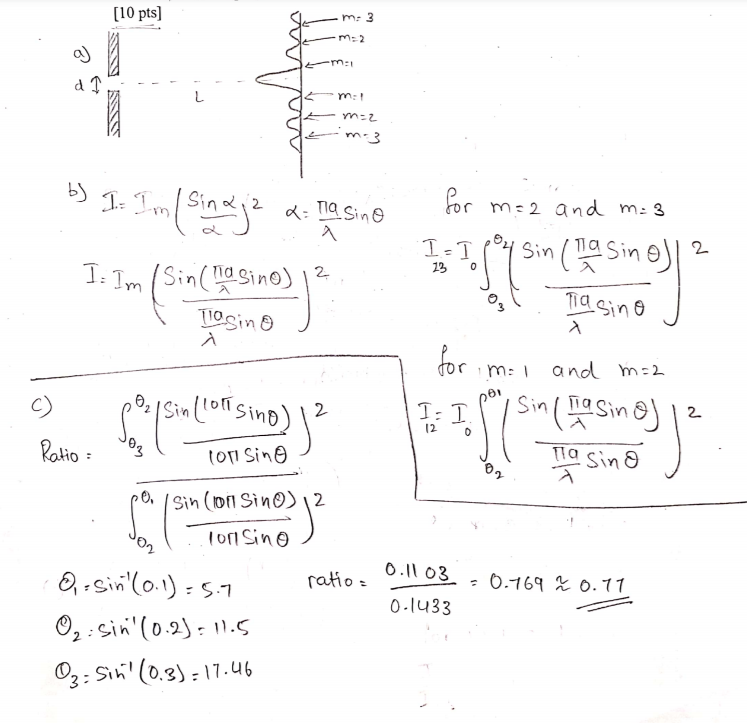 [10 pts]
a)
d ↕
L
m=3
m=2
m=1
m=1
m=2
m=3
b) I = I_m (Sin α / α)^2   α = πa/λ Sin θ
I = I_m (Sin(πa/λ Sin θ) / πa/λ Sin θ)^2
for m=2 and m=3
I_23 = I_0 ∫_θ3^θ2 (Sin(πa/λ Sin θ) / πa/λ Sin θ)^2
for m=1 and m=2
I_12 = I_0 ∫_θ2^θ1 (Sin(πa/λ Sin θ) / πa/λ Sin θ)^2
c)
Ratio = ∫_θ3^θ2 (Sin(10π Sin θ) / 10π Sin θ)^2
∫_θ2^θ1 (Sin(10π Sin θ) / 10π Sin θ)^2
θ1 = sin^-1(0.1) = 5.7
θ2 = sin^-1(0.2) = 11.5
θ3 = sin^-1(0.3) = 17.46
ratio = 0.1103 / 0.1433 = 0.769 ≈ 0.77